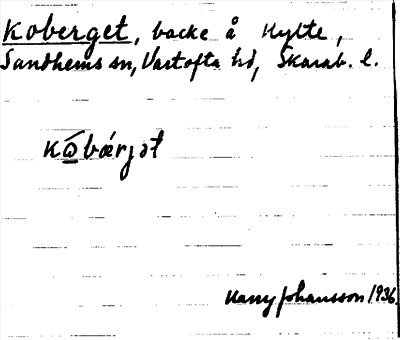 Koberget, backe å Hytte,
Sandhems sn, Vartofta hd, Skarab. l.
kωbǽrjət
Harry Johansson 1936.